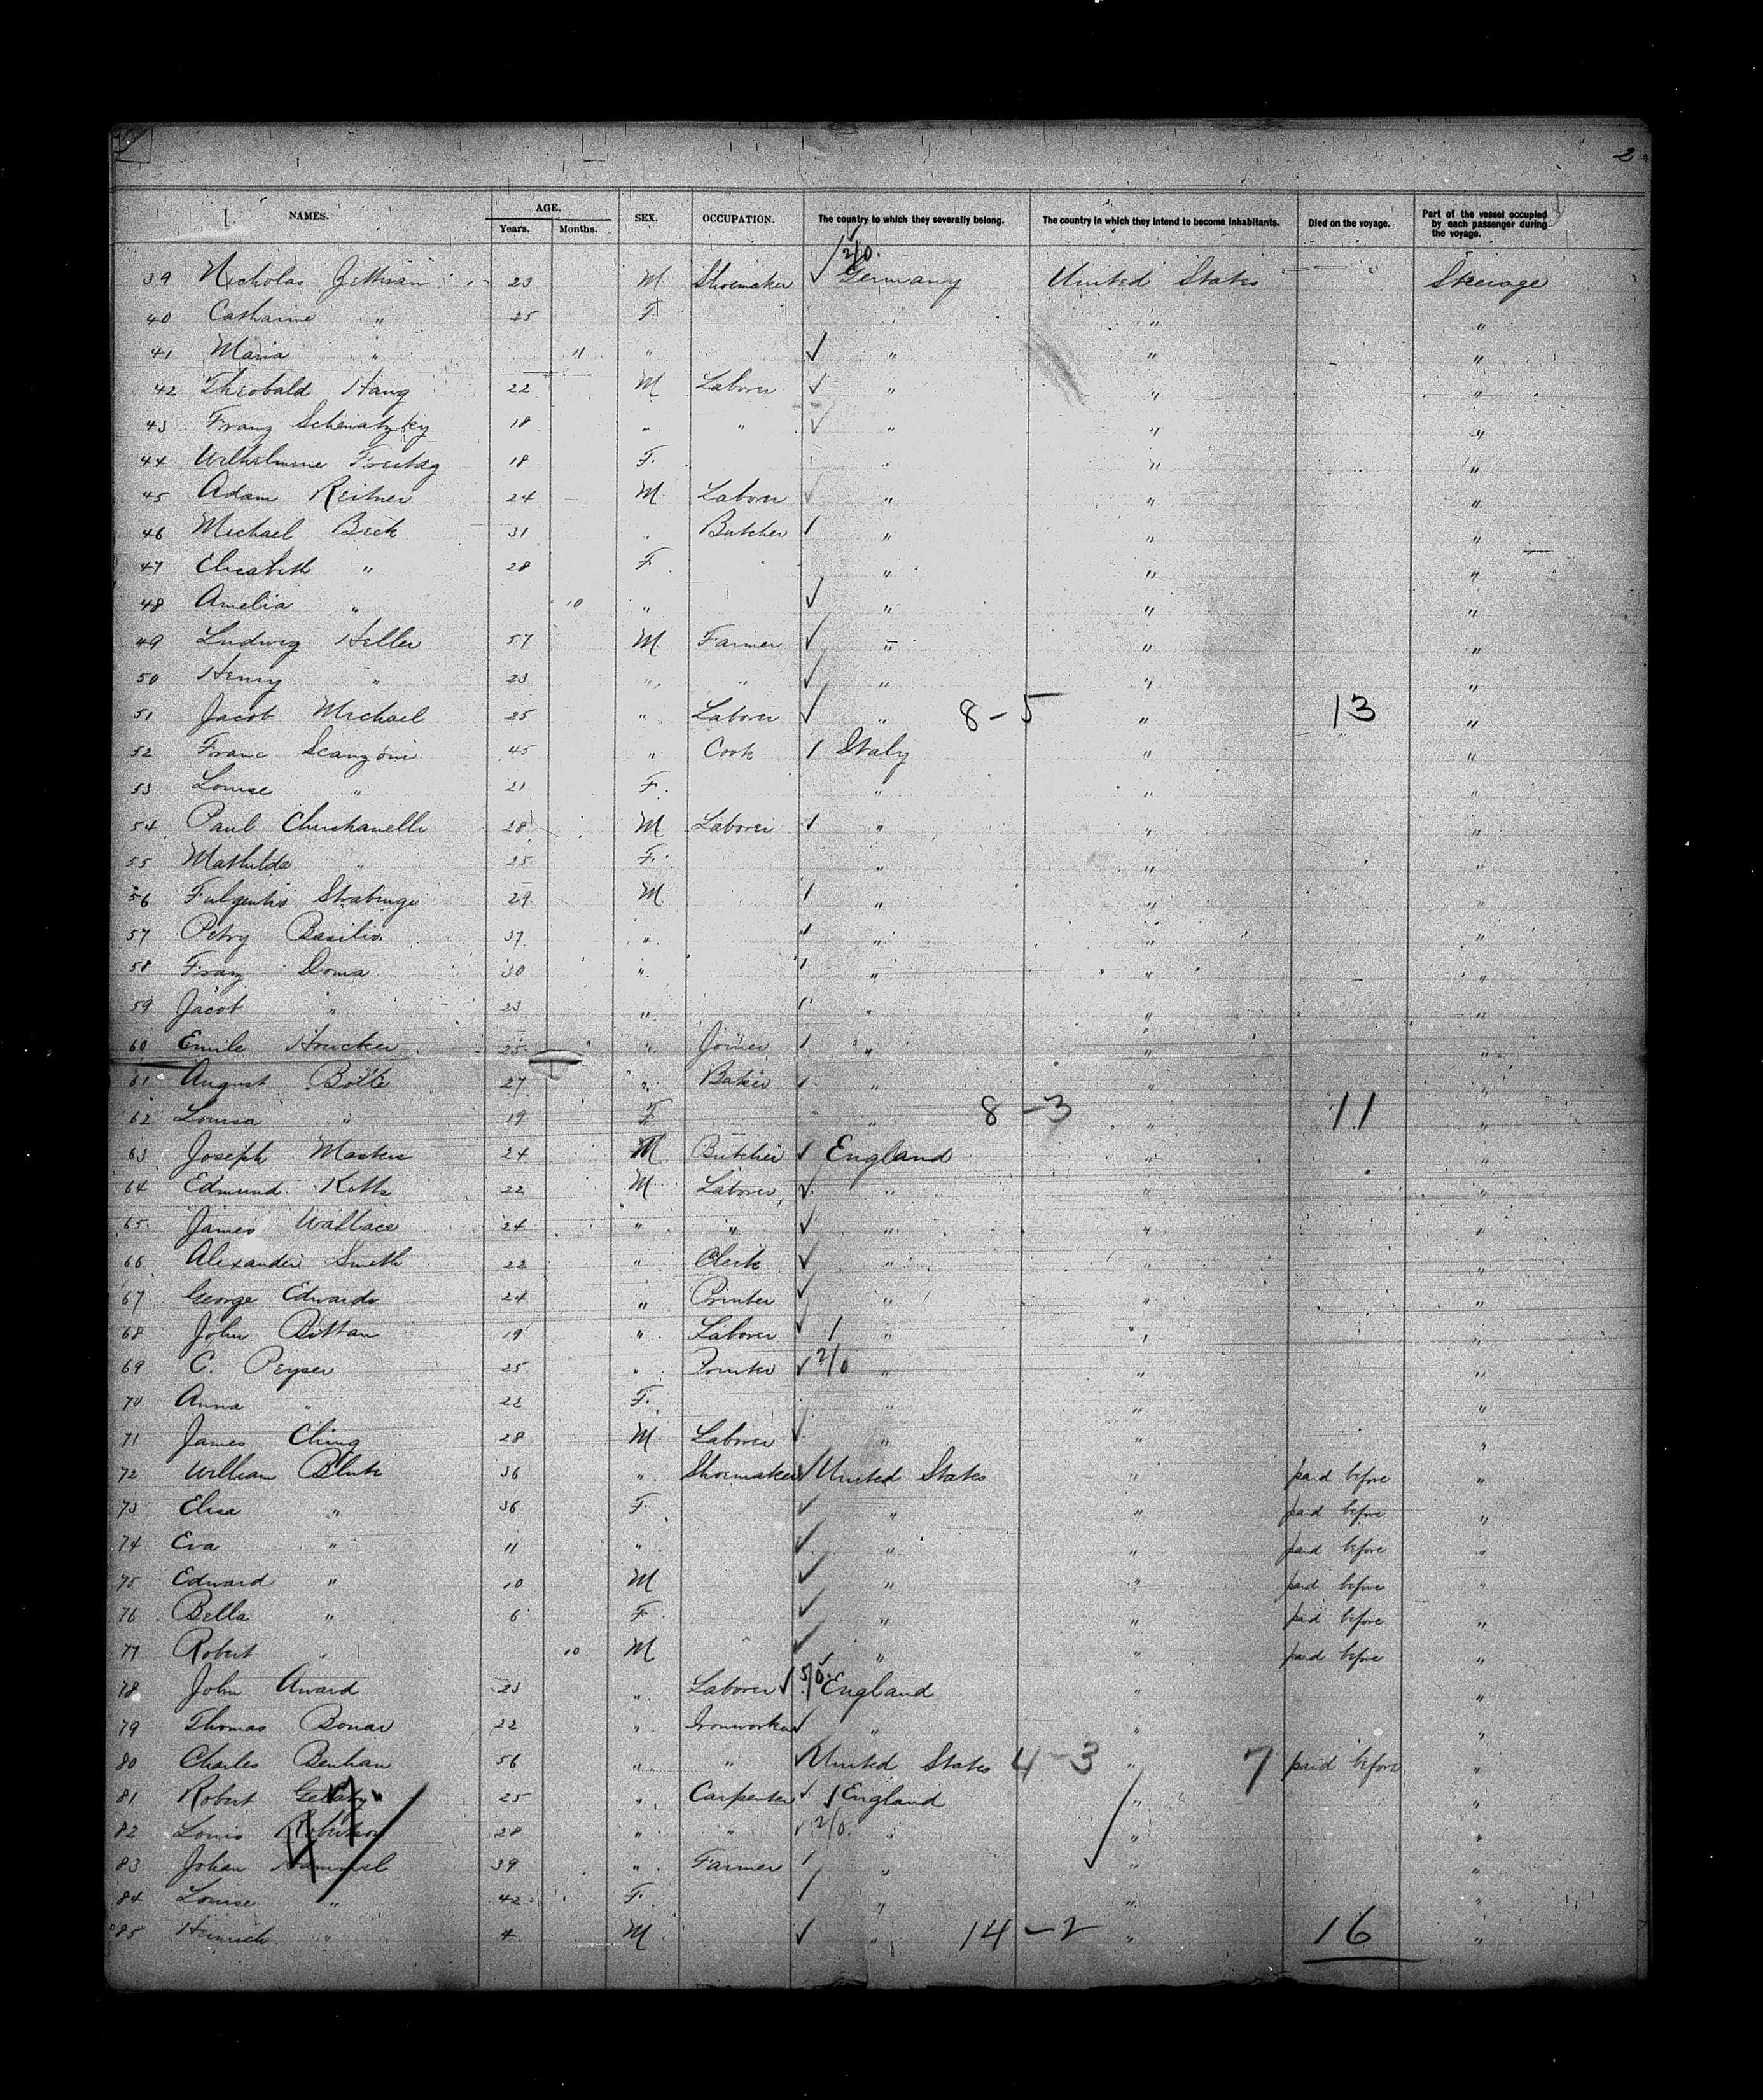 2
NAMES. AGE. SEX. OCCUPATION. The country to which they severally belong. The country in which they intend to become inhabitants. Died on the voyage. Part of the vessel occupied by each passenger during the voyage.
Years. Months.
2/0.
39 Nicholas 23 M Shoemaker ✓ Germany United States Steerage
40 Catharine " 25 F. " "
41 Maria " 11 " ✓ " " "
42 Theobald Haug 22 M Laborer ✓ " " "
43 Franz 18 " " ✓ " " "
44 Wilhelmine Freitag 18 F. " " "
45 Adam Reitner 24 M. Laborer ✓ " " "
46 Michael Beck 31 " Butcher / " " "
47 Elisabeth " 28 F. " " "
48 Amelia " 10 " ✓ " " "
49 Ludwig Heller 57 M Farmer ✓ " " "
50 Henry " 23 " " ✓ " " "
51 Jacob Michael 25 " Laborer ✓ " 8-5 " 13 "
52 Franc Scanzoni 45 " Cook / Italy " "
53 Louise " 21 F. " " "
54 Paul 28 M Laborer / " " "
55 Mathilde " 25 F. " " "
56 29 M / " " "
57 Petry Basilio 37 " / " " "
58 Franz Doma 30 " / " " "
59 Jacob " 23 " / " " "
60 Emile Houcker 25 " Joiner / " " "
61 August Botte 27 " Baker / " " "
62 Louisa " 19 F " 8-3 " 11 "
63 Joseph Masters 24 M Butcher ✓ England " "
64 Edmund Kitts 22 M Laborer ✓ " " "
65 James Wallace 24 " " ✓ " " "
66 Alexander Smith 22 " Clerk ✓ " " "
67 George Edwards 24 " Printer ✓ " " "
68 John Bittan 19 " Laborer ✓ / " " "
69 C. Peyser 25 " Printer ✓ 2/0 " " "
70 Anna " 22 F. " " "
71 James Ching 28 M Laborer ✓ " " "
72 William Blut 36 " Shoemaker ✓ United States " paid before "
73 Elisa " 36 F. ✓ " " paid before "
74 Eva " 11 " ✓ " " paid before "
75 Edward " 10 M ✓ " " paid before "
76 Bella " 6 F. ✓ " " paid before "
77 Robert " 10 M ✓ " " paid before "
78 John Award 23 " Laborer ✓ 5/0. England " "
79 Thomas Bonar 22 " Ironworker ✓ " " "
80 Charles Benham 56 " " ✓ United States 4-3 " 7 paid before "
81 Robert 25 " Carpenter ✓ / England " "
82 Louis Robertson 28 " " ✓ 2/0. " " "
83 Johan 39 " Farmer / " " "
84 Louise " 42 F. / " " "
85 Heinrich " 4 M ✓ " 14-2 " 16 "